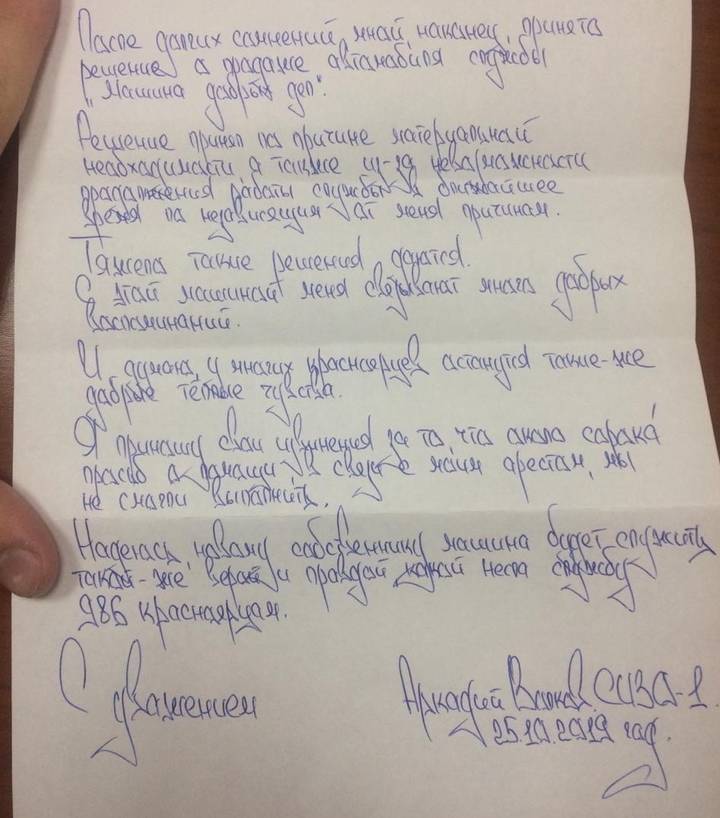 После долгих сомнений мной, наконец, принято
решение о продаже автомобиля службы
"Машина добрых дел".
Решение принял по причине материальной
необходимости, а также из-за невозможности
продолжения работы службы в ближайшее
время по независящим от меня причинам.
Тяжело такие решения даются.
С этой машиной меня связывают много добрых
воспоминаний.
И думаю, у многих красноярцев останутся такие-же
добрые тёплые чувства.
Я приношу свои извинения за то, что около сорока
просьб о помощи, в связи с моим арестом, мы
не смогли выполнить.
Надеюсь, новому собственнику машина будет служить
такой-же верой и правдой, какой несла службу
986 красноярцам.
С уважением
Аркадий Волков. СИЗО-1.
25.10.2019 год.